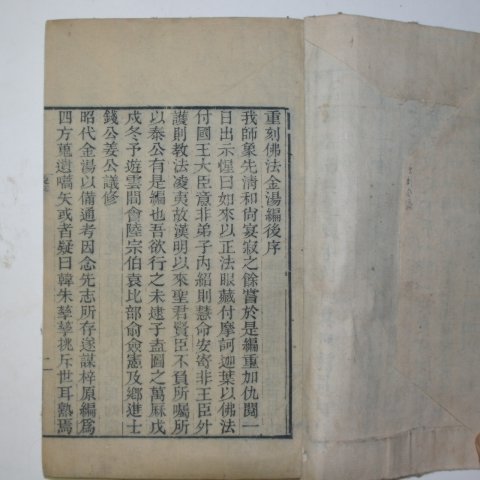 重刻佛法金湯編後序
我師象先淸和尙宴寂之餘嘗於是編重加仇閱一
日出示惺曰如來以正法眼藏付摩訶迦葉以佛法
付國王大臣意非弟子內紹則慧命安寄非王臣外
護則教法凌夷故漢明以來聖君賢臣不負所囑所
以泰公有是編也吾欲行之未逮子盍圖之萬厤戊
戌冬予遊雲間會陸宗伯袁比部俞僉憲及鄉進士
錢公姜公議修
昭代金湯以備通考因念先志所存遂謀梓原編爲
四方蒐遺嚆矢或者疑曰韓朱摮摮挑斥世耳熟焉
二